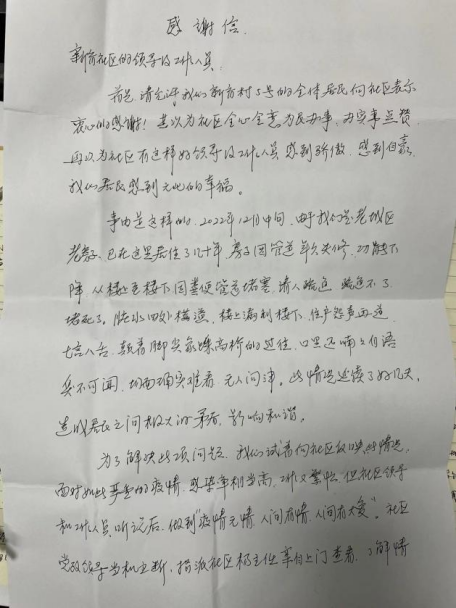 感谢信
新育社区的领导及工作人员
首先，请允许我们新育村5号的全体居民向社区表示
衷心的感谢！是以为社区全心全意为民办事，为实事点赞
再以为社区有这样好领导及工作人员感到骄傲，感到自豪
我们居民感到无比的幸福。
事由是这样的，2022年12月中旬，由于我们是老城区
老房子，已在这里居住了几十年，房子因管道年久失修，功能下
降，从楼上至楼下因粪便管道堵塞，请人疏通，疏通不了
堵死了。脏水四处横溢，楼上漏到楼下，住户怨声再道
七言八舌，颠着脚尖象踩高桥的过往，口里还喃喃自语
臭不可闻，场面确实难看，无人问津。此情况延续了好几天，
造成居民之间极大的矛盾，影响和谐。
为了解决此项问题，我们试着向社区反映此情况，
面对如此严重的疫情，感染率相当高，工作又繁忙，但社区领导
和工作人员听说后，做到"疫情无情，人间有情，人间有大爱"。社区
党政领导当机立断，指派社区杨主任亲自上门查看，了解情